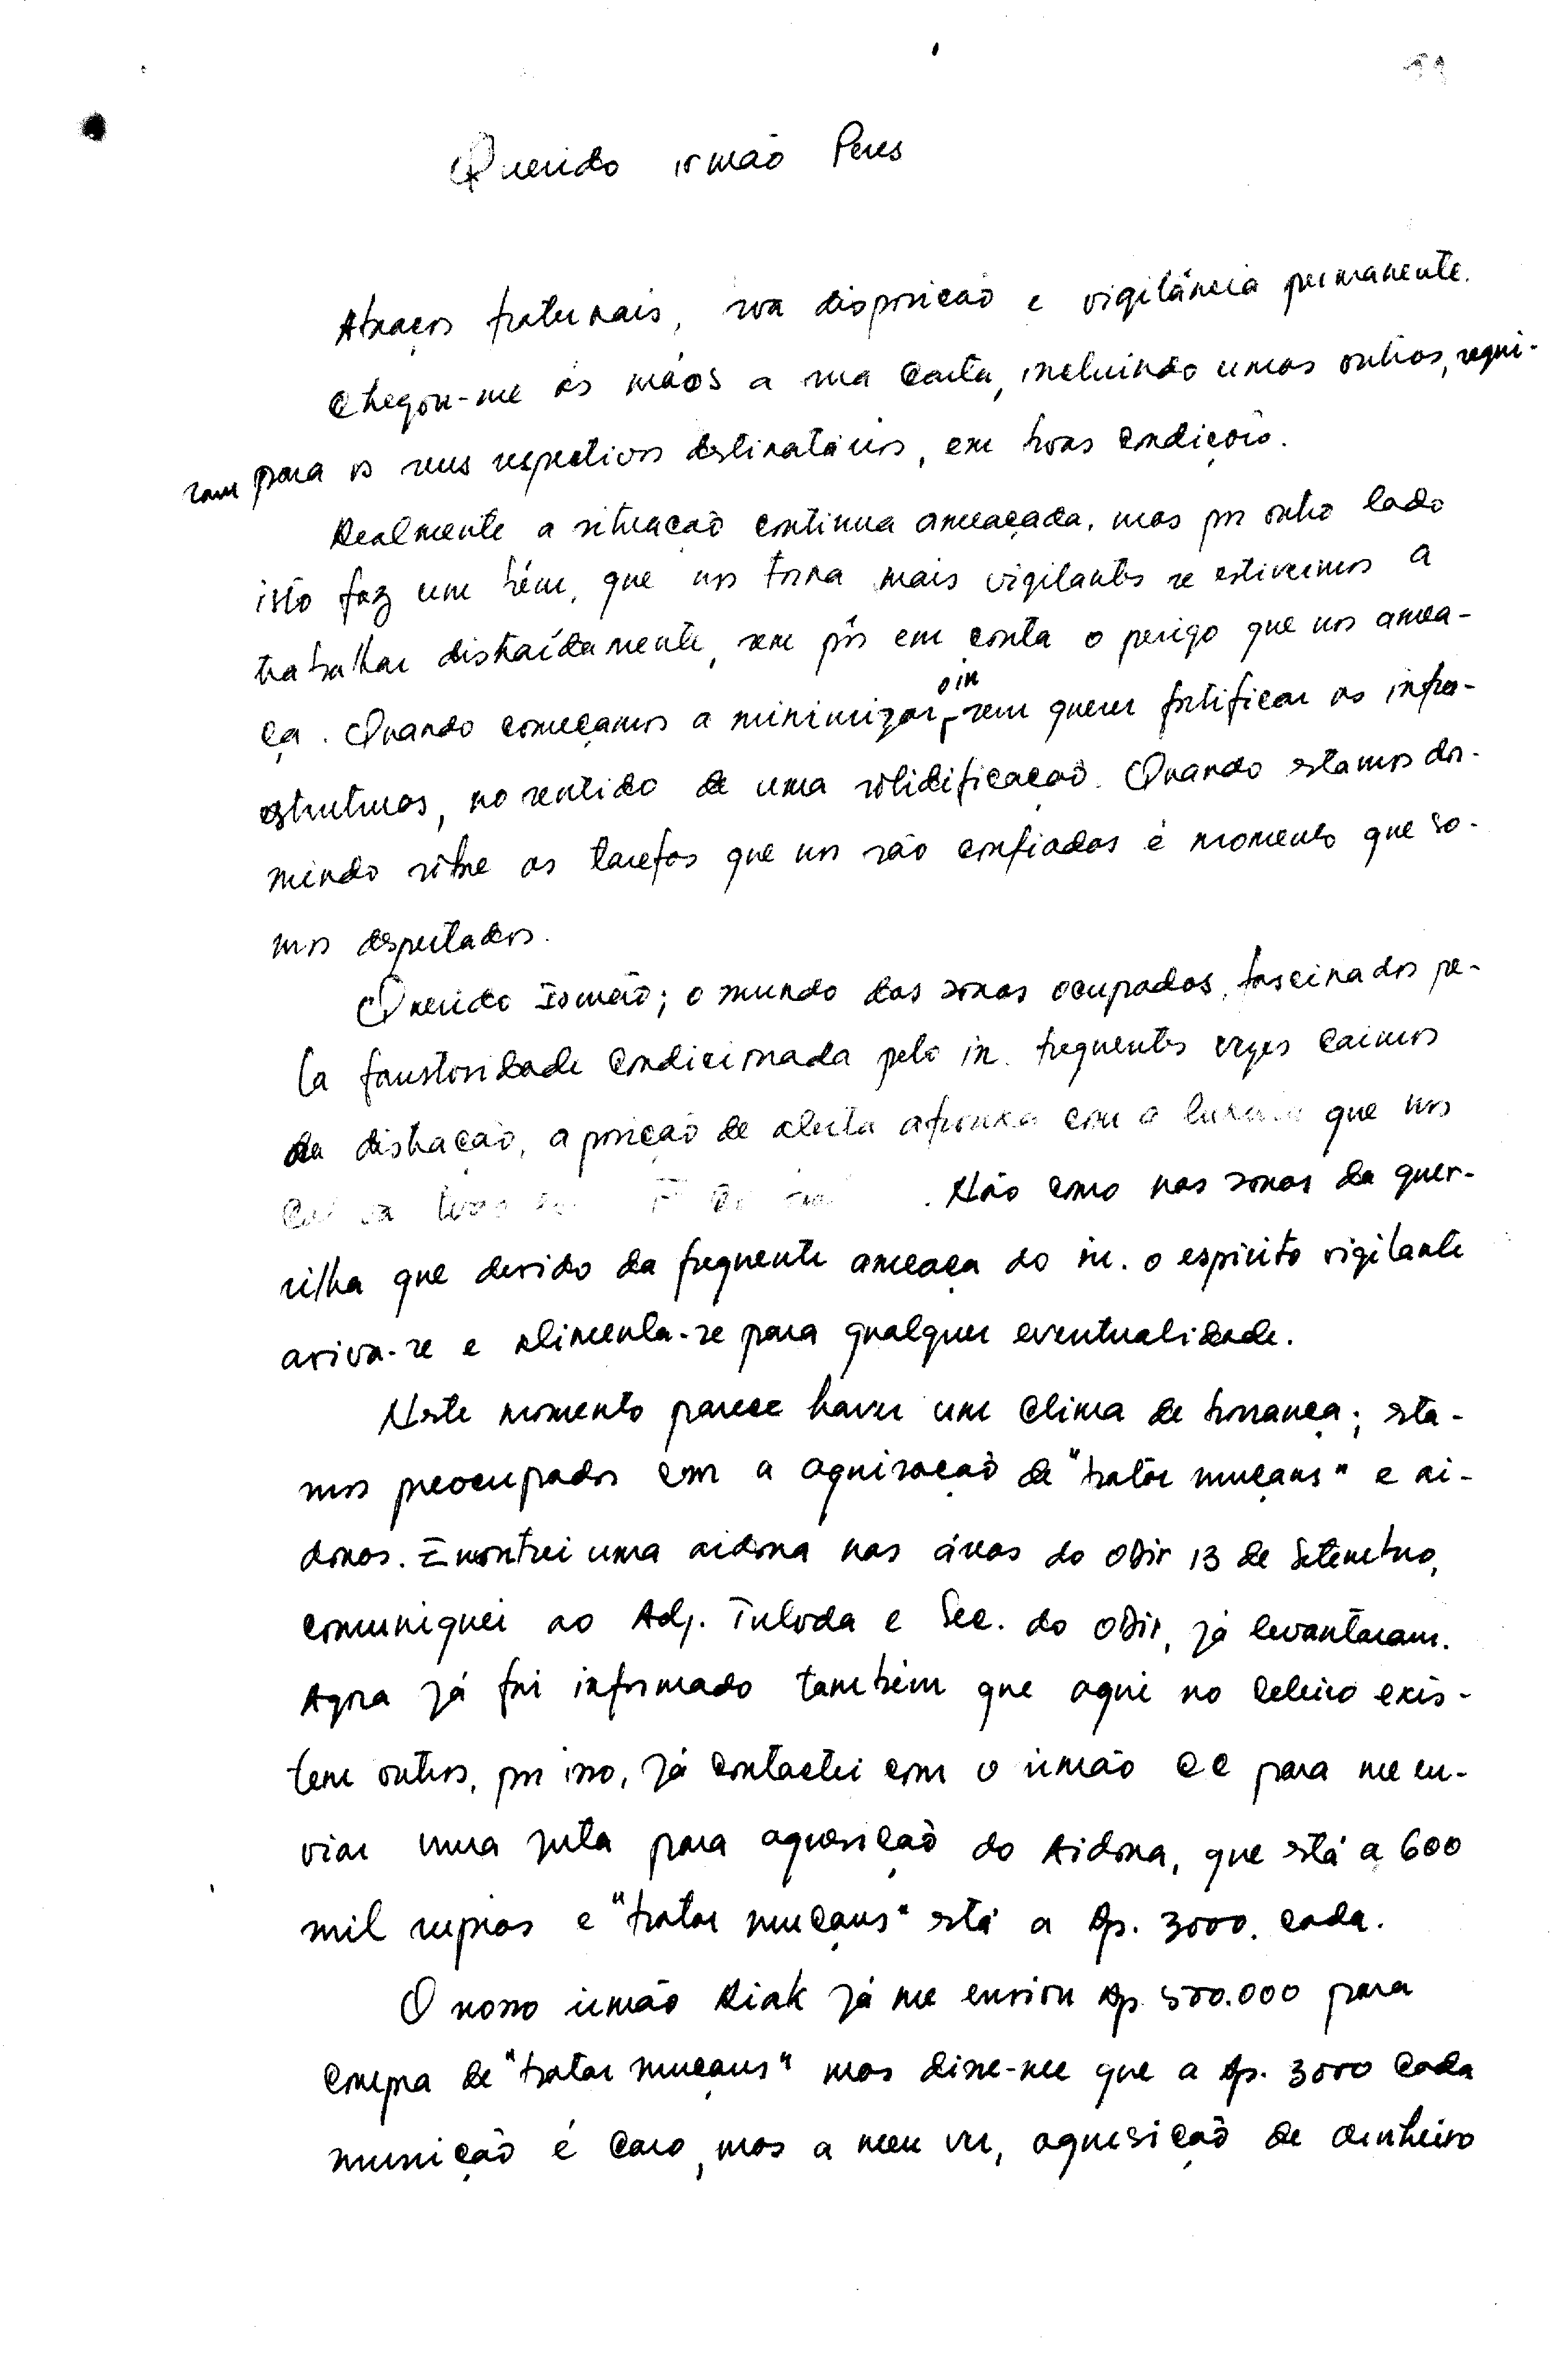 Querido irmão Peres
Abraços fraternais, boa disposição e vigilância permanente.
Chegou-me às mãos a sua carta, incluindo umas outras, segui-
ram para os seus respectivos destinatários, em boas condições.
Realmente a situação continua ameaçada, mas por outro lado
isto faz um bém, que nos torna mais vigilantes se estivermos a
trabalhar distraídamente, sem pôr em conta o perigo que nos amea-
ça. Quando começamos a minimizar o in, sem querer fortificar as infra-
estruturas, no sentido de uma solidificação. Quando estamos dor-
mindo sobre as tarefas que nos são confiadas é momento que so-
mos despertados.
Querido Irmão; o mundo das zonas ocupadas, fascinados pe-
la faustosidade condicionada pelo in. frequentes vezes caimos
da distração, a posição de alerta afrouxa com a que nos
. Não como nas zonas da guer-
rilha que devido da frequente ameaça do in. o espírito vigilante
aviva-se e alimenta-se para qualquer eventualidade.
Neste momento parece haver um clima de bonança; esta-
mos preocupados com a aquisação de "batar musans" e ai-
donas. Encontrei uma aidona nas áreas do OBir 13 de Setembro,
comuniquei ao Adj. Tuloda e Sec. do OBir, já levantaram.
Agora já fui informado também que aqui no celeiro exis-
tem outros, por isso, já contactei com o irmão CC para me en-
viar uma juta para aquesição do Aidona, que está a 600
mil rupias e "batar musans" está a Rp. 3000. cada.
O nosso irmão Riak já me enviou Rp. 500.000 para
compra de "batar musans" mas disse-me que a Rp. 3000 cada
munição é caro, mas a meu ver, aquesição de dinheiro